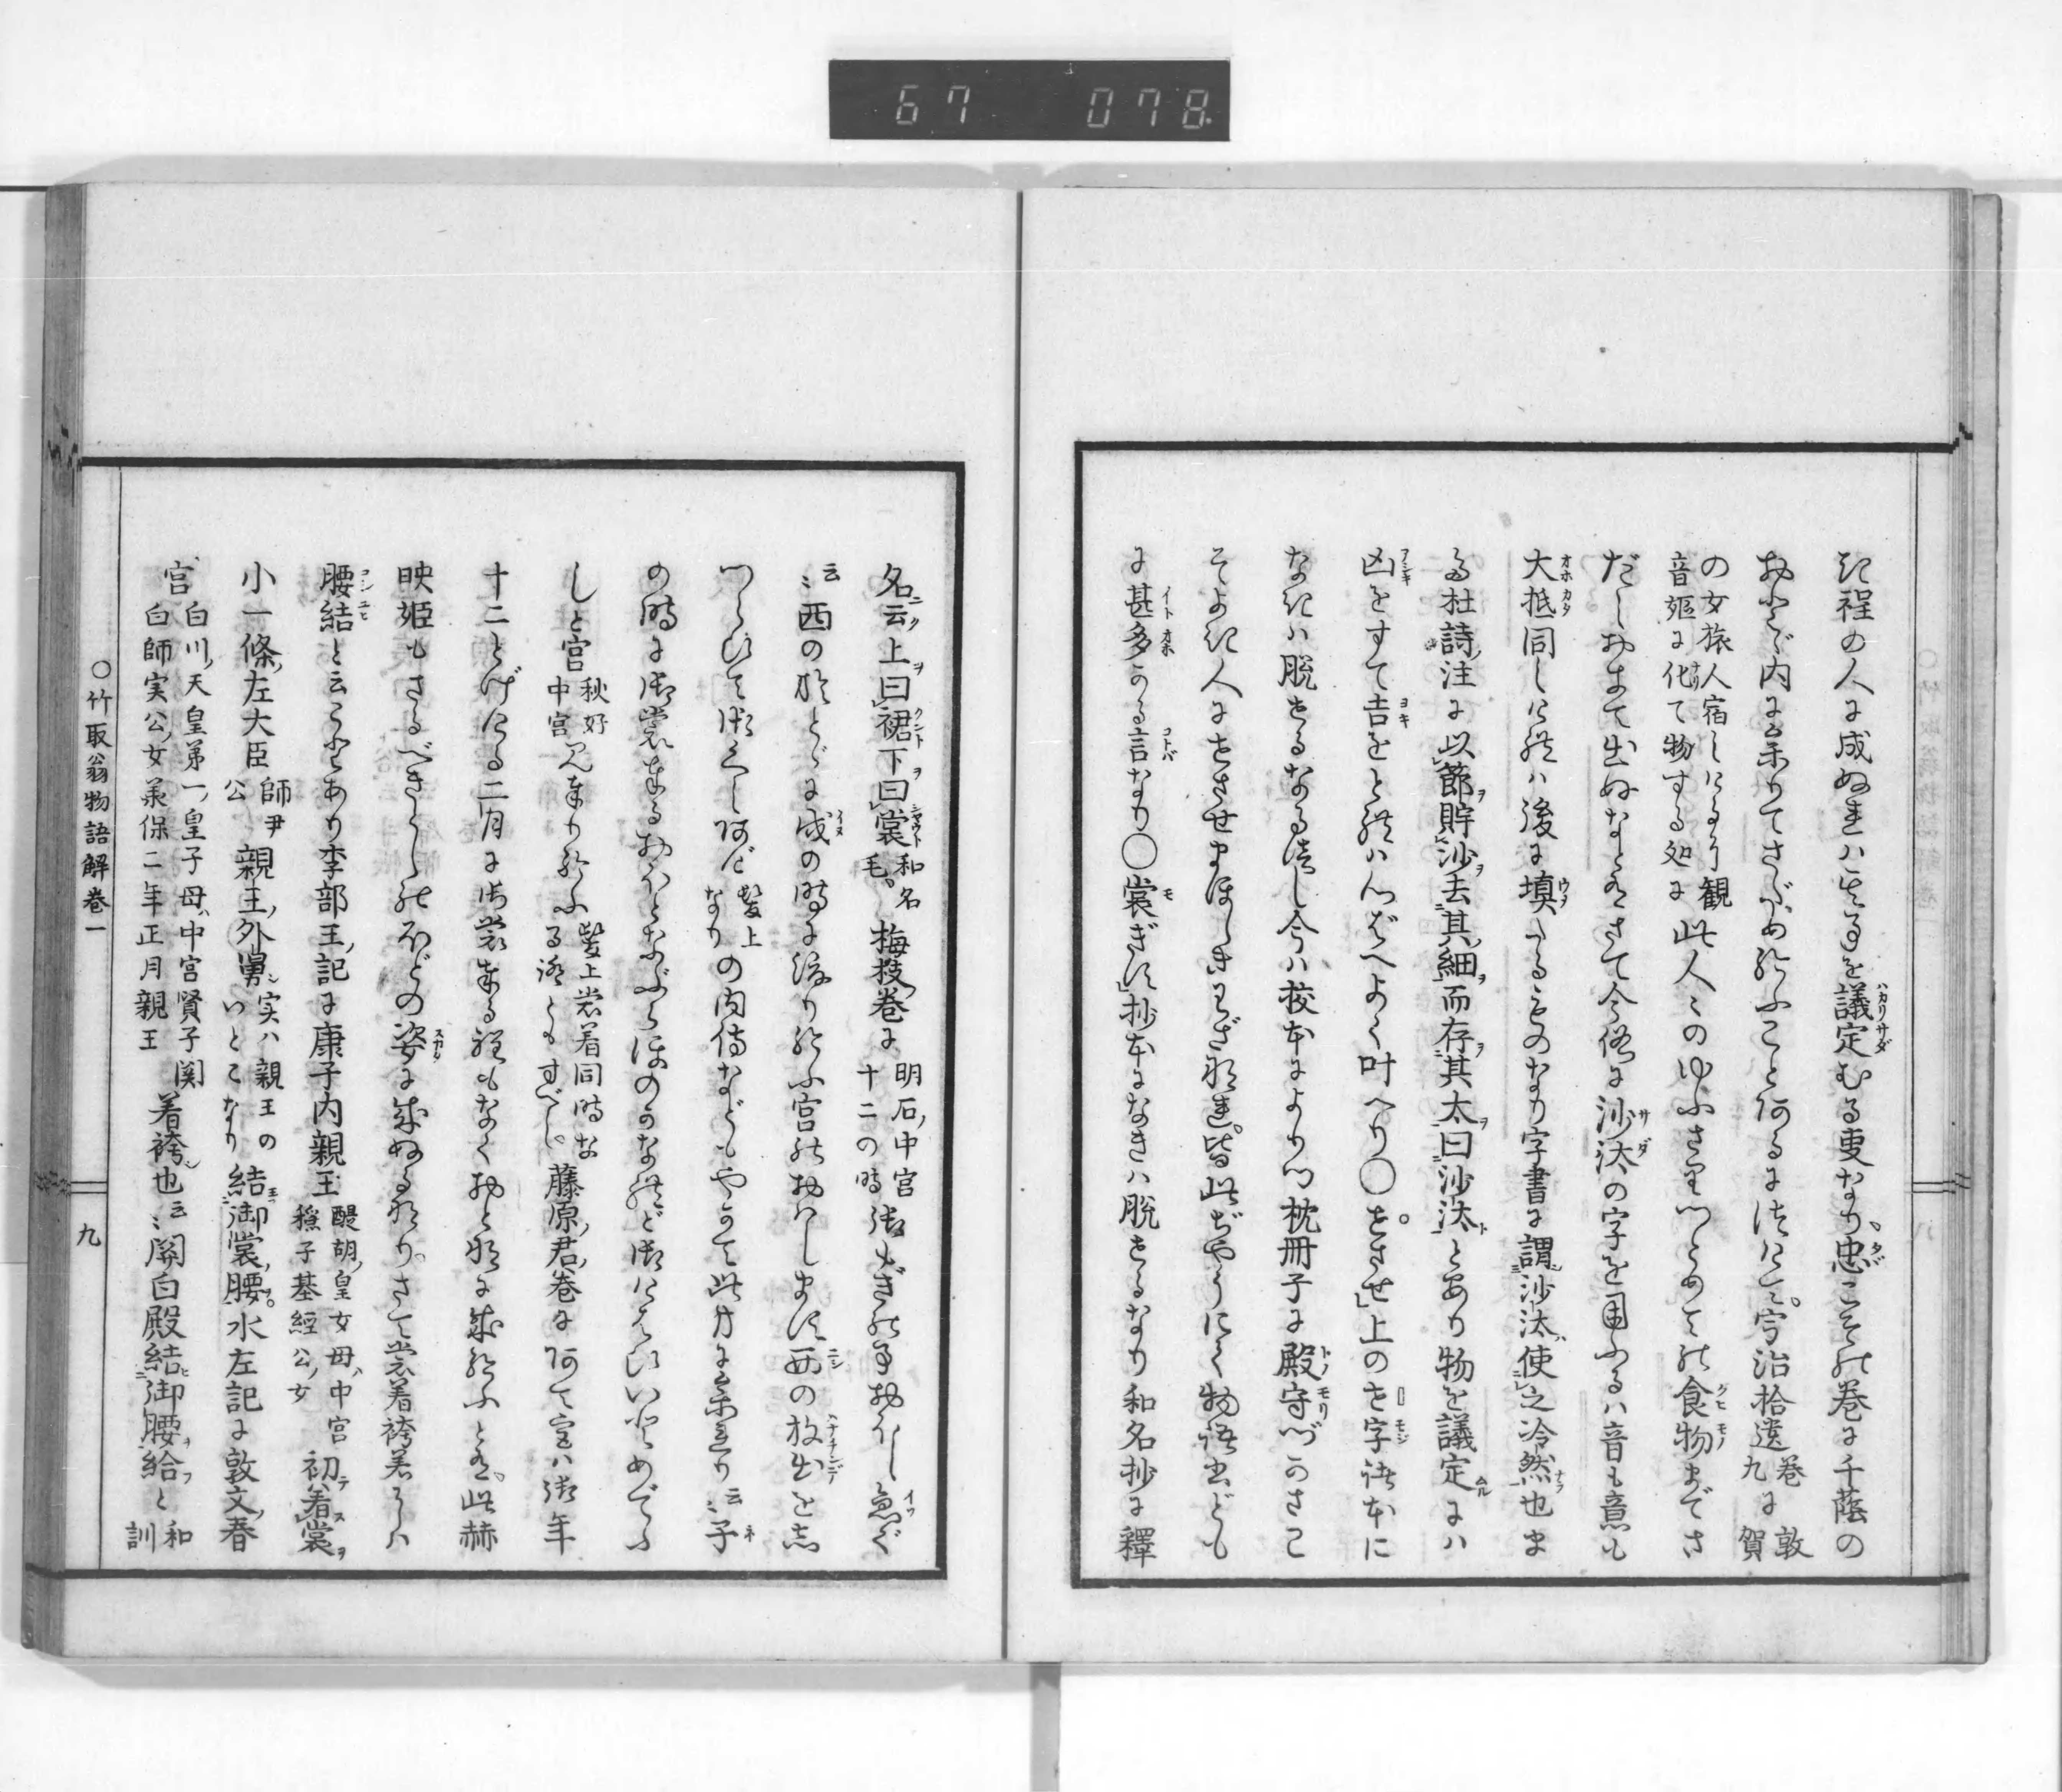 67 078
き程の人に成ぬれハ其事を議定むる更なり、忠こその巻に千蔭の
おとゞ内に参りてさだめ給ふこと有るにはにて。宇治拾遺巻九に敦賀
の女旅人宿しにける所観音姫に化て物する処に此人々のゆふさりつとめての食物までさ
だしおきて出ぬなどもさて今俗に沙汰の字を用ふるハ音も意も
大抵同しけれハ後に填たるものなり字書に謂沙汰使之冷然也ま
た杜詩注に以篩貯沙去其細而存其太曰沙汰とあり物を議定にハ
凶をすて吉をとれハ心ばへよく叶へり〇をさせ上のを字諸本に
なきハ脱せるなる諸し今ハ校本によりつ枕冊子に殿守づかさこ
そよき人にせさせまほしきわざなれ。皆此ぢやうにく物語書ども
に甚多かる言なり〇裳ぎす抄本になきハ脱せるなり和名抄に釋
名云上曰裙下曰裳和名毛。梅枝巻に明石中宮十二の時御もぎの事おほし急ぐ
云〻西のおとゞに戌の時に渡り給ふ宮のおはします西の放出をし
つらひて御くし阿げ髪上なりの内侍などもやがて此方に参れり云〻子
の時に御裳奉るおほとなぶらほのかなれど御けはひいとめでた
しと宮秋好中宮見奉り給ふ髪上裳着同時なる諸ともすべし。藤原君巻に阿て宮ハ御年
十二とげける二月に御裳奉る程もなくおとなに成給ふとも。此赫
映姫もさるべきくらのほどの姿に成ぬるなり。さて裳着袴着にハ
腰結と云ことあり李部王記に康子内親王醍胡皇女母中宮穏子基經公女初着裳
小一條左大臣師尹公親王外舅実ハ親王のいとこなり結御裳腰。水左記に敦文春
宮白川天皇弟一皇子母中宮賢子関白師実公女承保二年正月親王着袴也云〻關白殿結御腰給と和訓
〇竹取翁物語解巻一
九